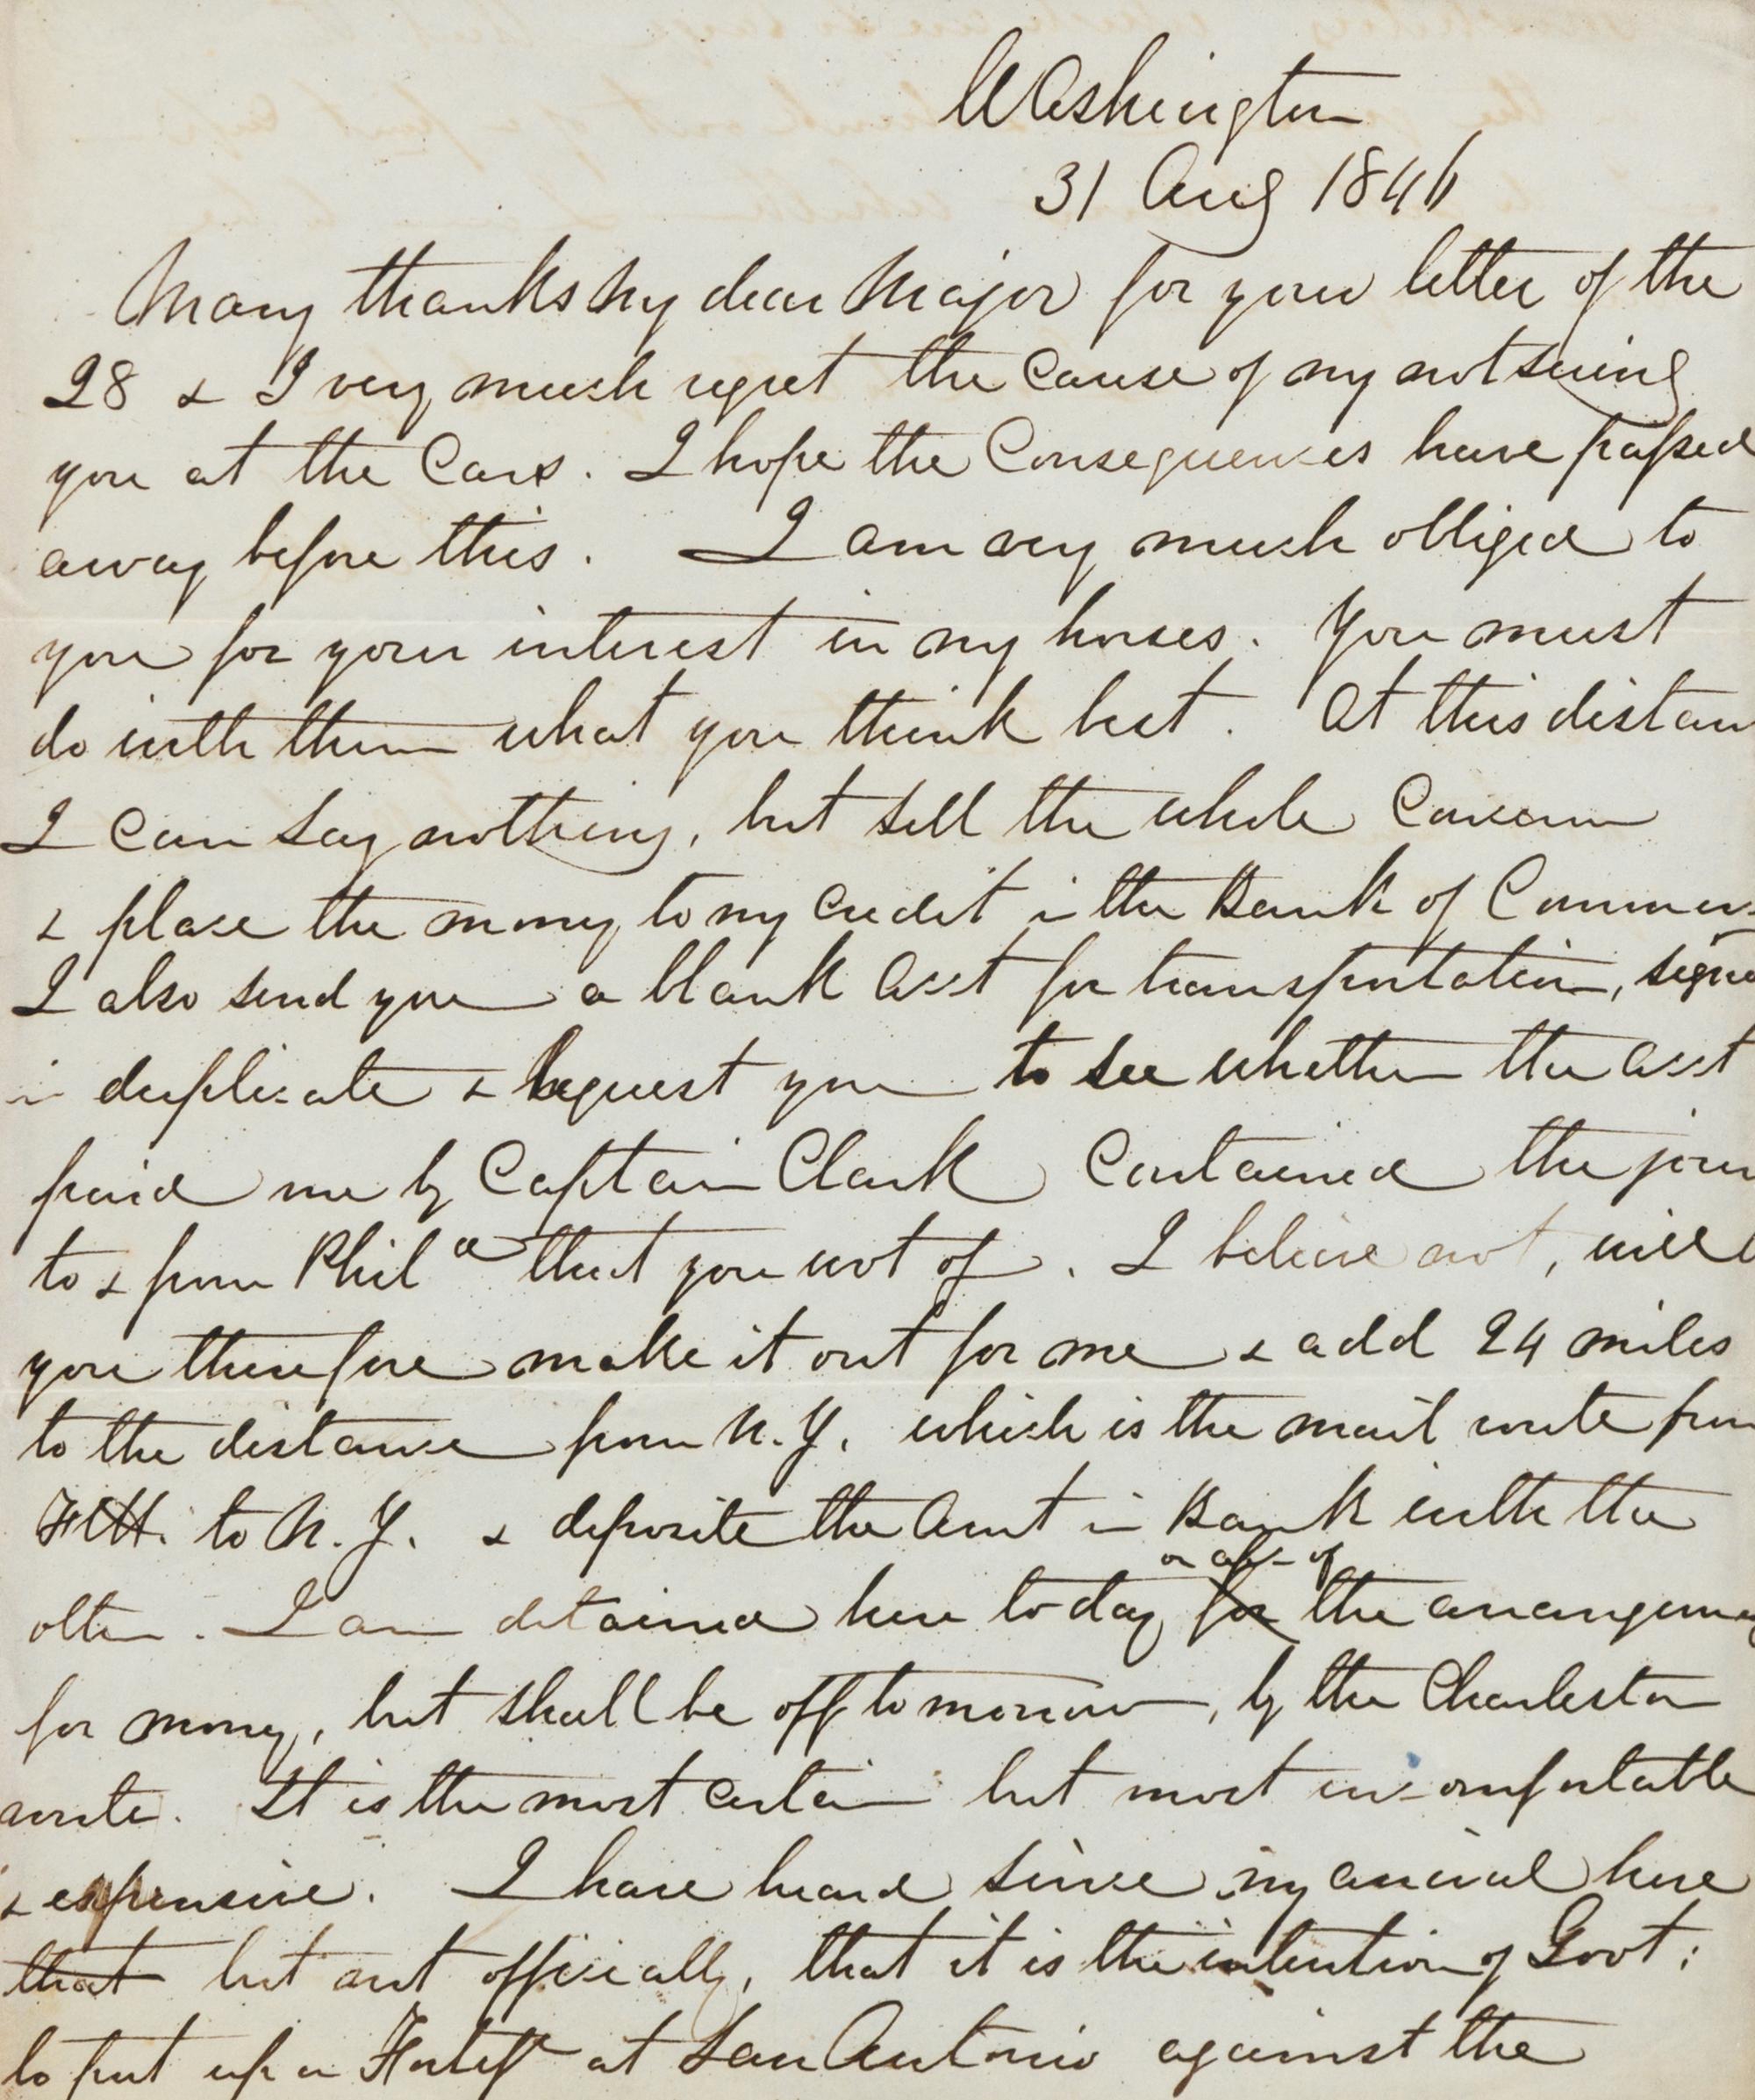 Washington
31 Aug 1846
Many thanks my dear Major for your letter of the
28 & I very much regret the cause of my not seeing
you at the Cars. I hope the Consequences have passed
away before this. I am very much obliged to
you for your interest in my horses. You must
do with them what you think best. At this distan
I can say nothing, but sell the whole Concern
& place the money to my credit in the Bank of Commer-
I also send you a blank acct for transportation, signe
in duplicate & request you to see whether the acct
paid me by Captain Clark Contained the jour
to & from Phila that you wot of. I believe not, will
you therefore make it out for me & add 24 miles
to the distance from N.Y. which is the mail route from
FtH. to N.Y. & deposite the Amt in Bank with the
other. I am detained here to day for on acc of the arrangeme
for money, but shall be off tomorrow, by the Charleston
route. It is the most certain but most uncomfortable
& expensive. I have heard since my arrival here
that but not officially, that it is the intention of Govt:
to put up a Fortifn at San Antonio against the